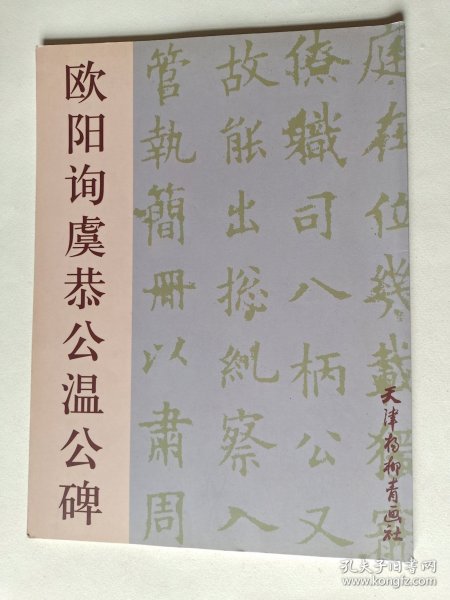 欧阳询虞恭公温公碑
庭在位幾載猶
僚職司八柄公又
故能出揔糺察入
管執簡冊以肅周
天津杨柳青画社
孔夫子旧书网
www.kongfz.com